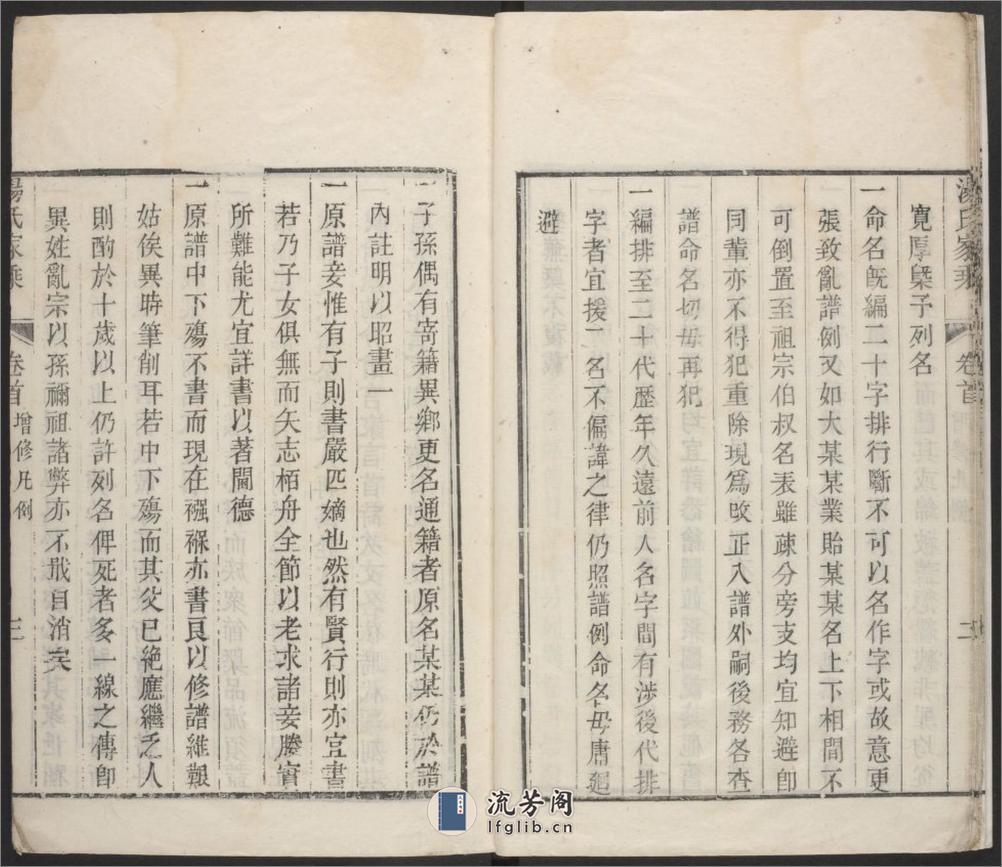 湯氏家乘 卷首 二
寬厚槩予列名
一命名旣編二十字排行斷不可以名作字或故意更
張致亂譜例又如大某某業貽某某名上下相間不
可倒置至祖宗伯叔名表雖疎分旁支均宜知避卽
同輩亦不得犯重除現爲改正入譜外嗣後務各查
譜命名切毋再犯
一編排至二十代歷年久遠前人名字間有涉後代排
字者宜援二名不偏諱之律仍照譜例命名毋庸廻
避
一子孫偶有寄籍異鄉更名通籍者原名某某仍於譜
內註明以昭畫一
一原譜妾惟有子則書嚴匹嫡也然有賢行則亦宜書
若乃子女俱無而矢志栢舟全節以老求諸妾媵實
所難能尤宜詳書以著閫德
一原譜中下殤不書而現在襁褓亦書良以修譜維艱
姑俟異時筆削耳若中下殤而其父已絶應繼乏人
則酌於十歲以上仍許列名俾死者多一線之傳卽
異姓亂宗以孫禰祖諸弊亦不戢自消矣
湯氏家乘 卷首 增修凡例 三
流芳阁
lfglib.cn